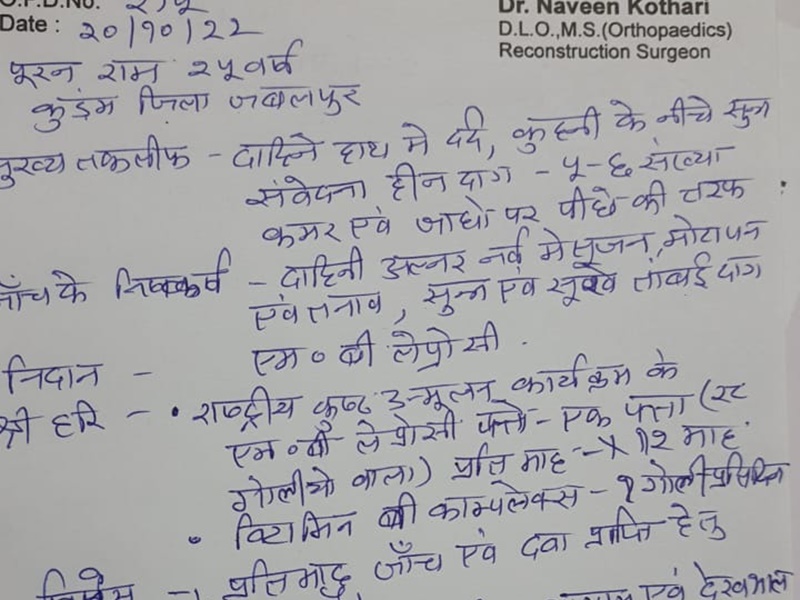 O.P.D.No.
Dr. Naveen Kothari
Date : २०/१०/२२
D.L.O.,M.S.(Orthopaedics)
Reconstruction Surgeon
पूरन राम २५ वर्ष
कुडंम जिला जबलपुर
मुख्य तकलीफ - दाहिने हाथ मे दर्द, कुहनी के नीचे सुन्न
संवेदना हीन दाग - ५-६ संख्या
कमर एवं जाघों पर पीछे की तरफ
जाँच के निष्कर्ष - दाहिनी अल्नर नर्व मे सूजन, मोटापन
एवं तनाव, सुन्न एवं सूखे तांबई दाग
निदान - एम॰ बी लेप्रोसी.
श्री हरि - • राष्ट्रीय कुष्ठ उन्मूलन कार्यक्रम के
एम॰बी लेप्रोसी पत्ते - एक पत्ता (२८
गोलीयो वाला) प्रति माह - x १२ माह.
• विटामिन बी काम्पलेक्स - १ गोली प्रतिदिन
प्रतिमाह जाँच एवं दवा प्राप्ति हेतु
एवं देखभाल